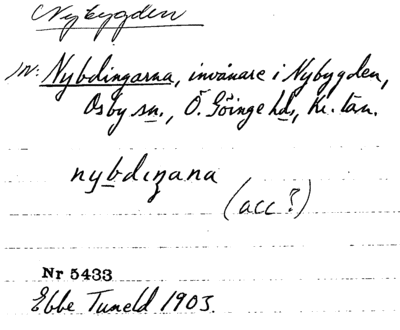 Nybygden
In: Nybdingarna, invånare i Nybygden,
Osby sn., Ö. Göinge hd, Kr. län.
nybdiŋana
(acc?)
Nr 5433
Ebbe Tuneld 1903.